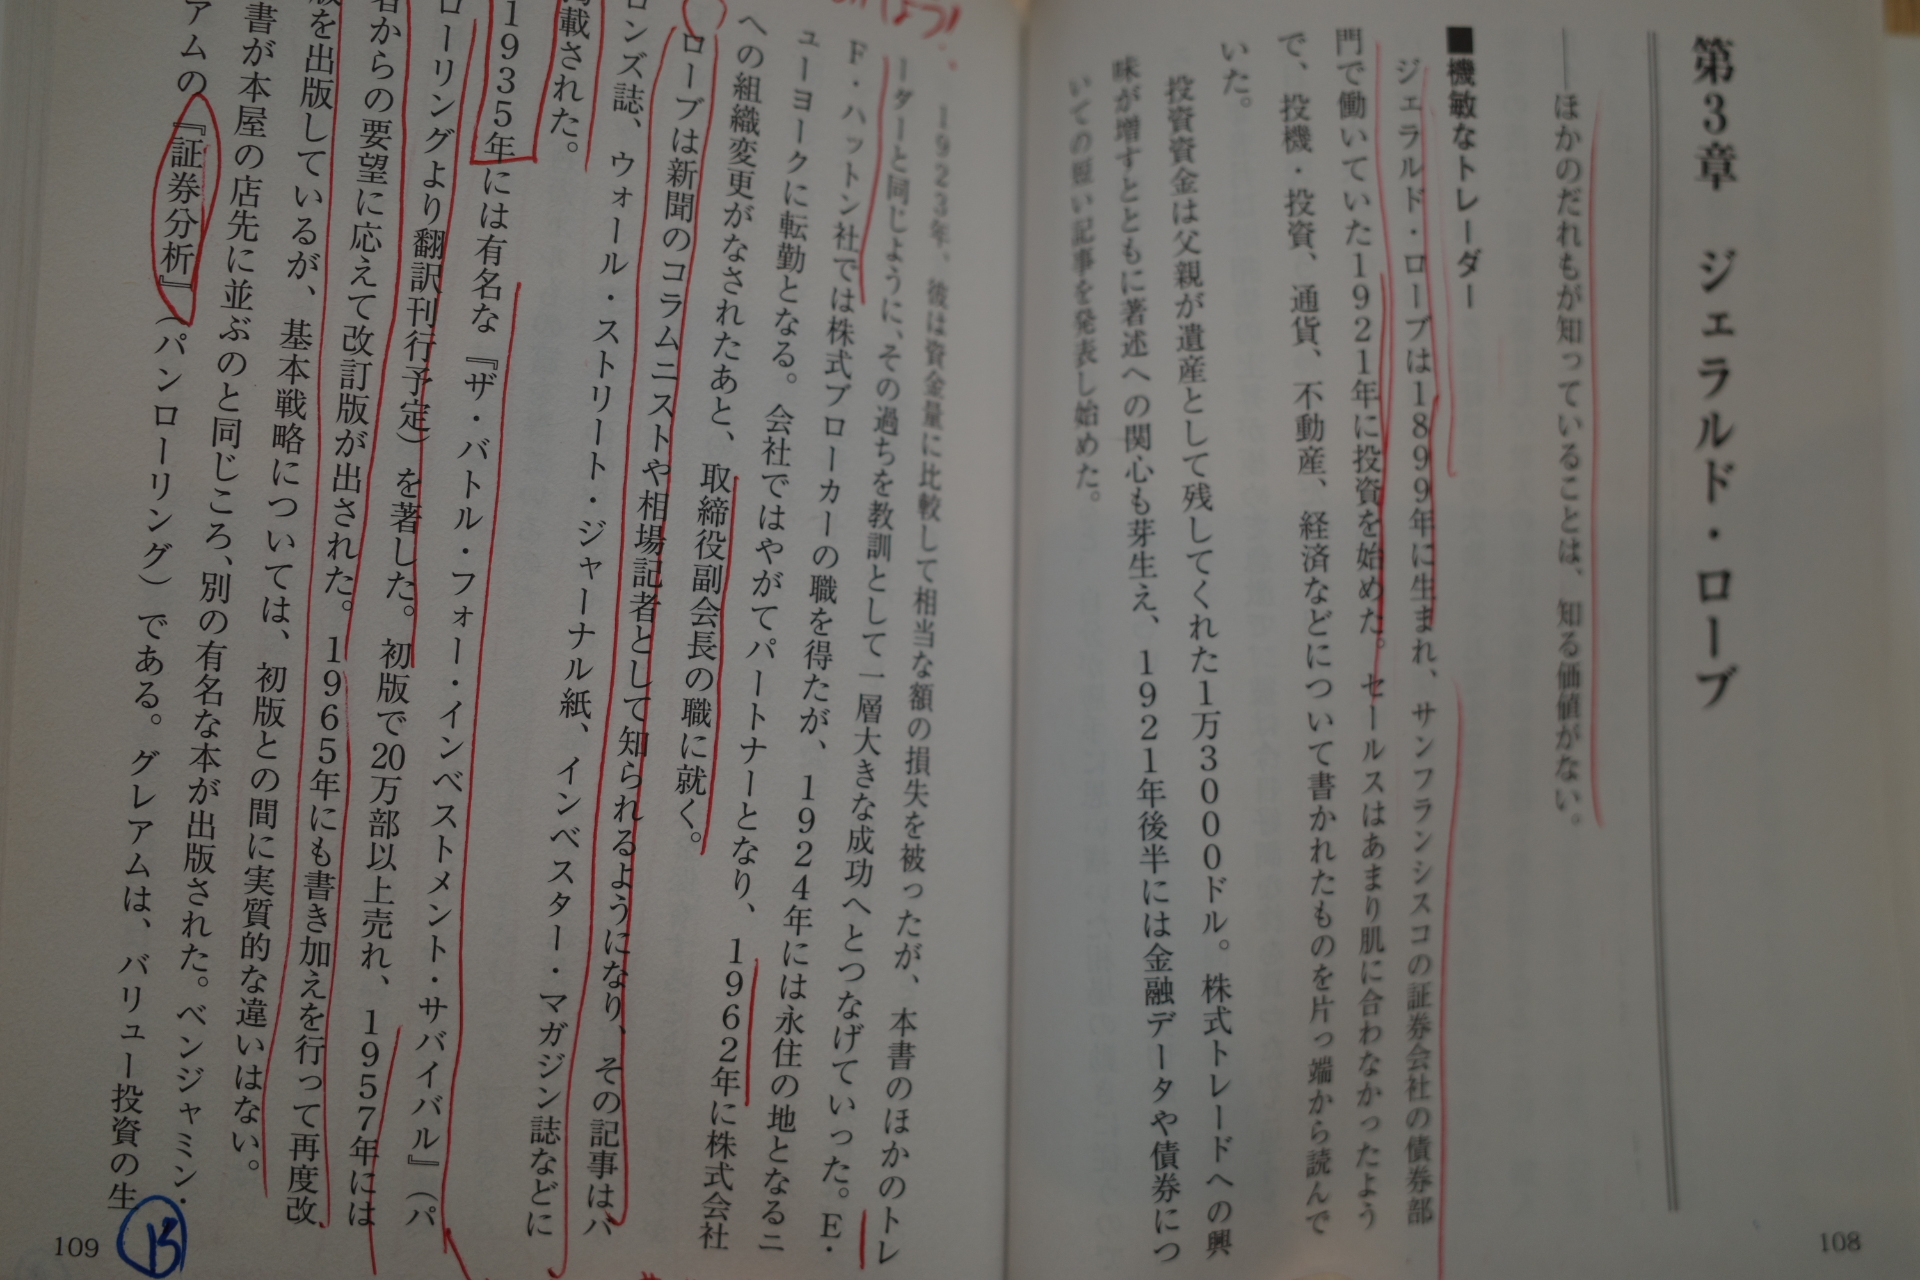 第3章 ジェラルド・ローブ
――ほかのだれもが知っていることは、知る価値がない。
■機敏なトレーダー
ジェラルド・ローブは1899年に生まれ、サンフランシスコの証券会社の債券部
門で働いていた1921年に投資を始めた。セールスはあまり肌に合わなかったよう
で、投機・投資、通貨、不動産、経済などについて書かれたものを片っ端から読んで
いた。
投資資金は父親が遺産として残してくれた1万3000ドル。株式トレードへの興
味が増すとともに著述への関心も芽生え、1921年後半には金融データや債券につ
いての短い記事を発表し始めた。
108
1923年、彼は資金量に比較して相当な額の損失を被ったが、本書のほかのトレ
ーダーと同じように、その過ちを教訓として一層大きな成功へとつなげていった。E・
F・ハットン社では株式ブローカーの職を得たが、1924年には永住の地となるニ
ューヨークに転勤となる。会社ではやがてパートナーとなり、1962年に株式会社
への組織変更がなされたあと、取締役副会長の職に就く。
ローブは新聞のコラムニストや相場記者として知られるようになり、その記事はバ
ロンズ誌、ウォール・ストリート・ジャーナル紙、インベスター・マガジン誌などに
掲載された。
1935年には有名な『ザ・バトル・フォー・インベストメント・サバイバル』(パ
ローリングより翻訳刊行予定)を著した。初版で20万部以上売れ、1957年には
者からの要望に応えて改訂版が出された。1965年にも書き加えを行って再度改
版を出版しているが、基本戦略については、初版との間に実質的な違いはない。
書が本屋の店先に並ぶのと同じころ、別の有名な本が出版された。ベンジャミン・
アムの『証券分析』(パンローリング)である。グレアムは、バリュー投資の生
109
13